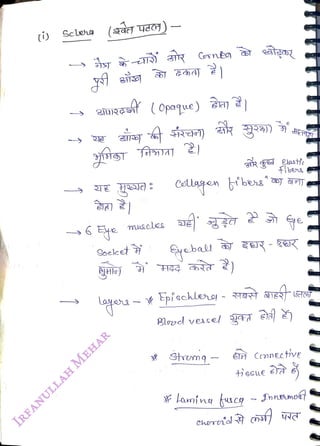 (i) Sclera (श्वेत पटल) —
→ नेत्र के चारों ओर Cornea को छोड़कर
पूरी आँख को ढकता है।
→ अपारदर्शी (Opaque) होता है।
→ यह आंख की संरचना और सुरक्षा में
भूमिका निभाता है।
और कुछ elastic
fibers
→ यह मुख्यतः Collagen fibers का बना
होता है।
→ 6 Eye muscles यहीं जुड़ते है जो Eye
Socket में Eyeball को इधर - उधर
घुमाने में मदद करते है।
→ layers — * Epischlera - सबसे बाहरी परत
Blood versel युक्त होती है।
* Stroma — Connective
tissue होते है
* Lamina fusca - Innermost
choroid से लगी परत
IRFANULLAH MEHAR